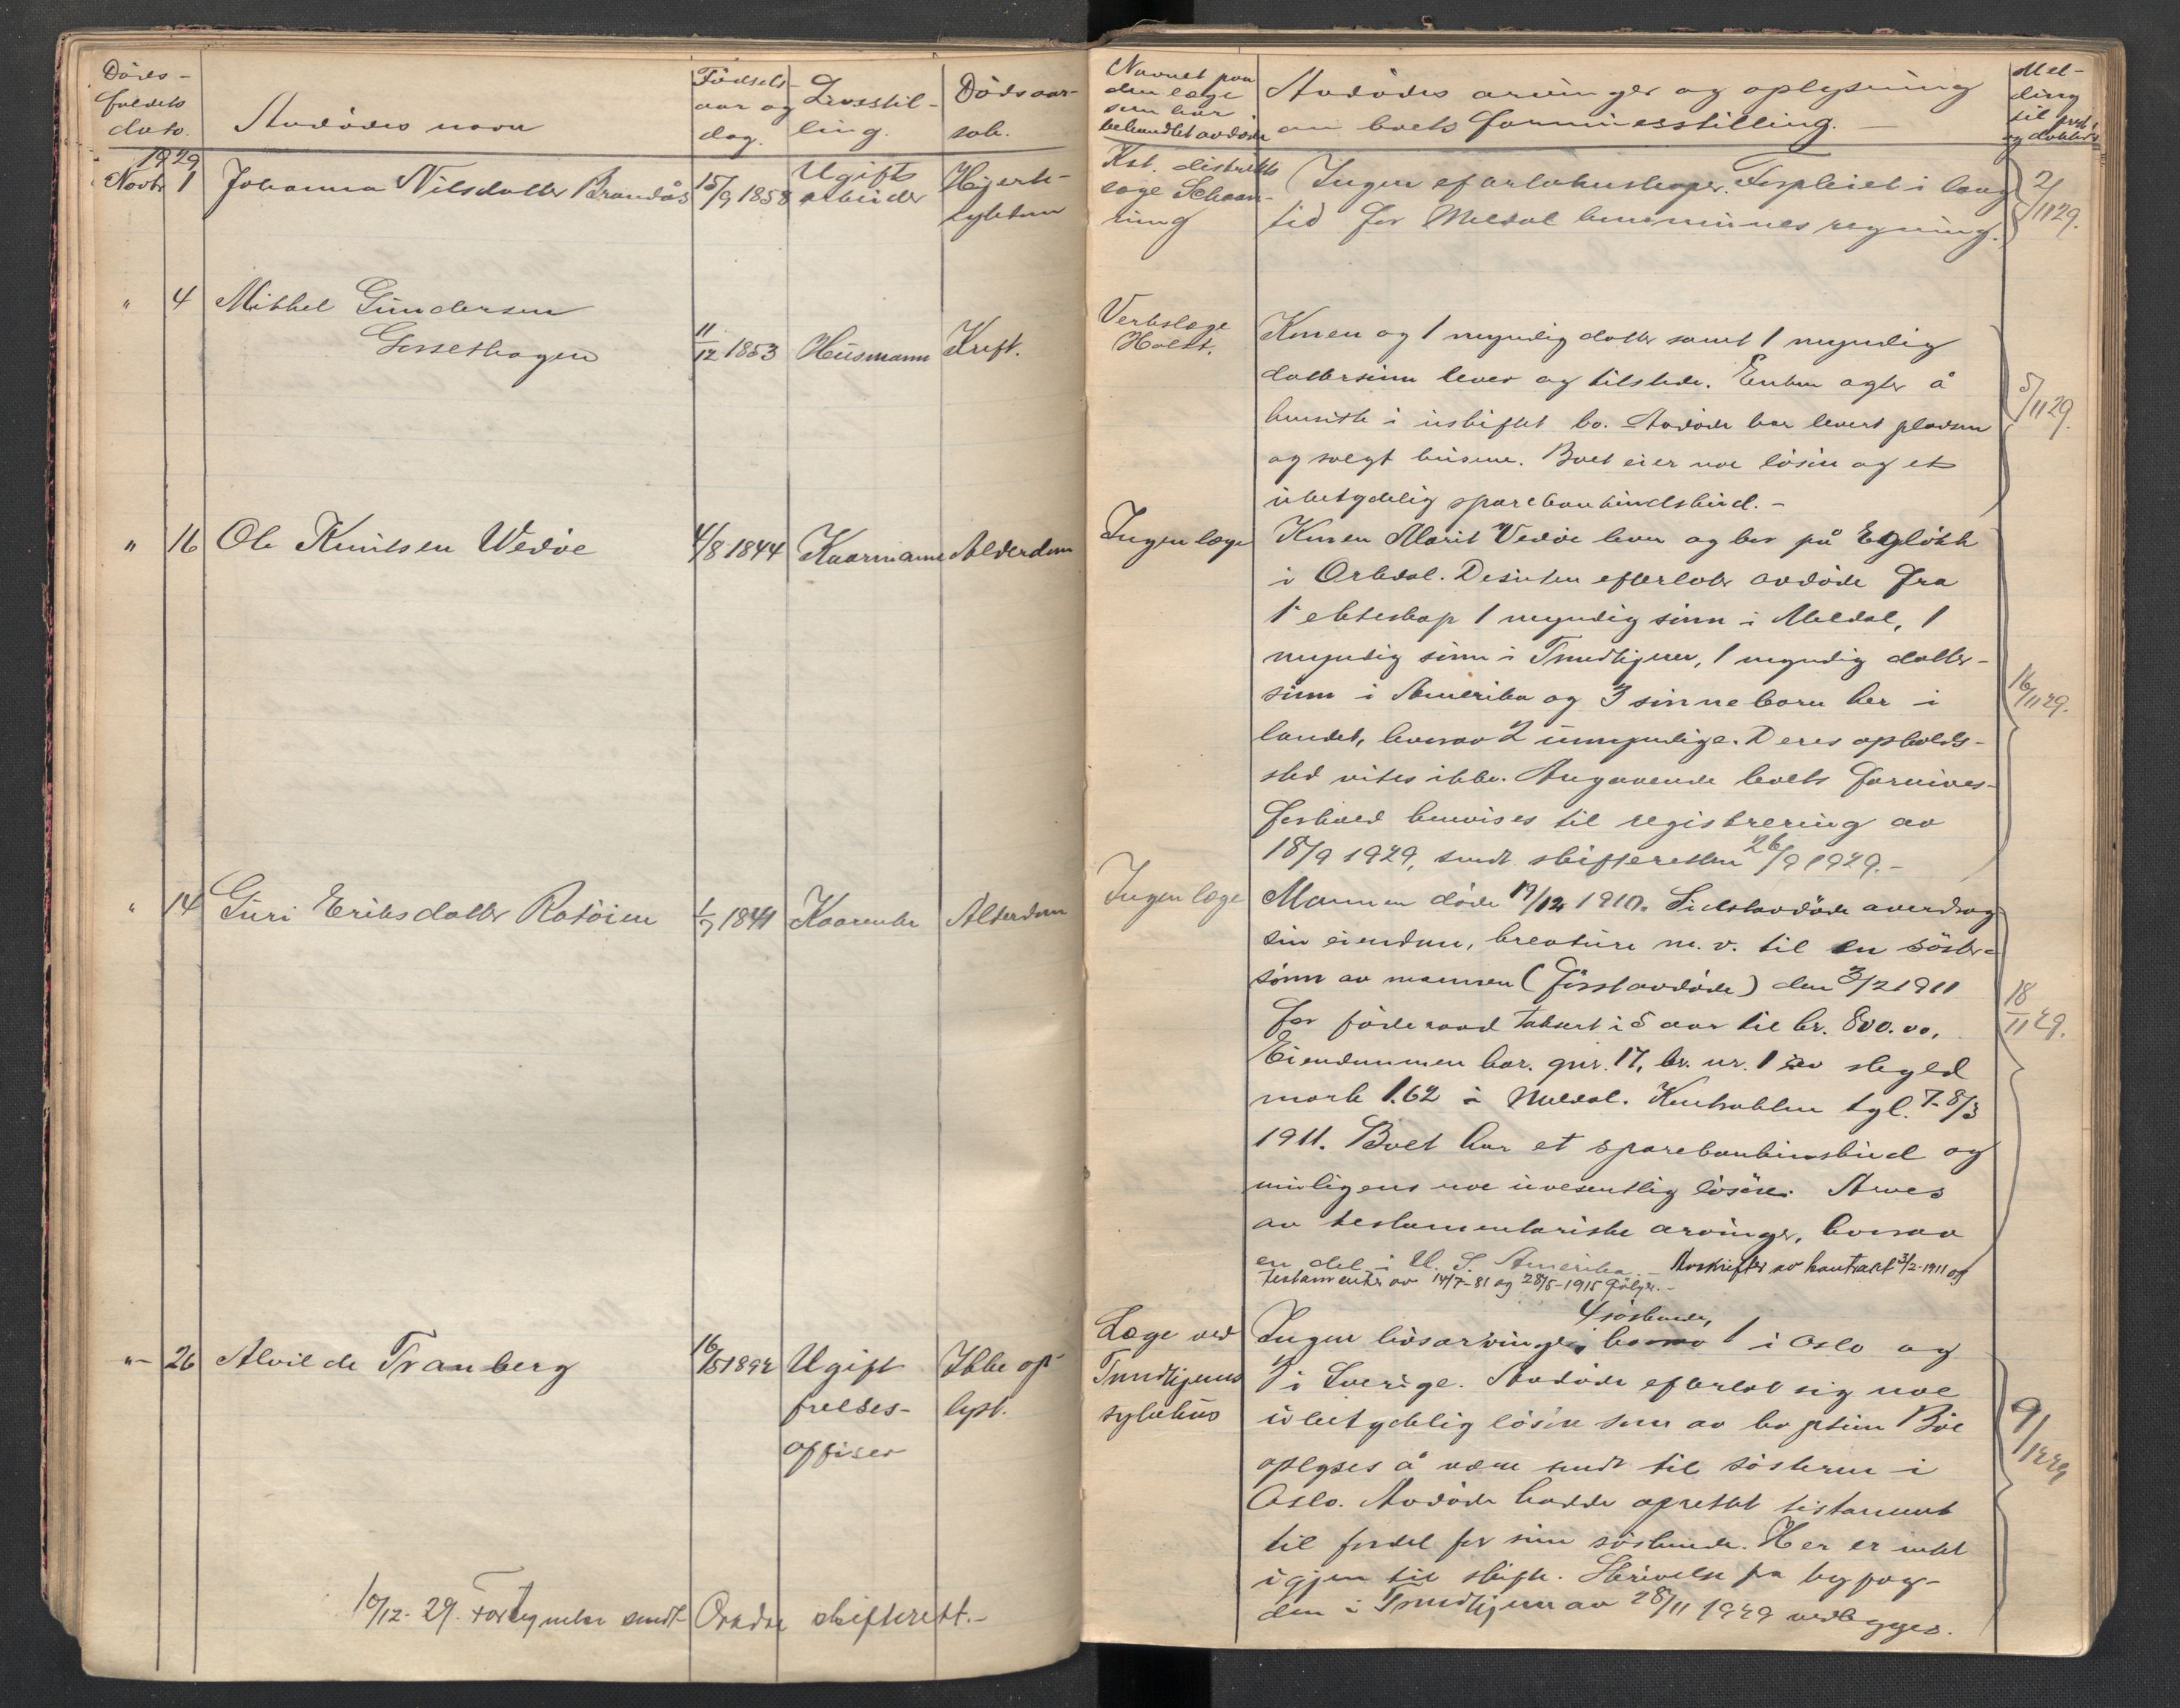 Døds-
faldets
dato.
Avdødes navn
Fødsels-
aar og
dag.
Livsstil-
ling.
Dødsaar-
sak.
Navnet paa
den læge
som har
behandlet avdøde
Avdødes arvinger og oplysning
om boets formuesstilling. -
Mel-
ding
til
1929
Novbr 1
Johanna Nilsdatter Brandås
15/9 1858
Ugift
arbeider
Hjerte-
sykdom
Kst. distrikts
læge Schaan-
ning
Ingen efterlatenskaper. Forpleiet i lang
tid for Meldal kommunes regning.
2/11 29.
" 4
Mikkel Gundersen
Gresethagen
11/12 1853
Husmann
Kreft.
Verkslæge
Holst.
Konen og 1 myndig datter samt 1 myndig
dattersønn lever og tilstede. Enken agter å
hensitte i uskiftet bo. Avdøde har levert pladsen
og solgt husene. Boet eier noe løsøre og et
ubetydelig sparebankindskud. -
5/11 29.
" 16
Ole Knutsen Wedøe
4/8 1844
Kaarmann
Alderdom
Ingen læge
Konen Marit Vedøe lever og bor på
i Orkdal. Desuten efterlater avdøde fra
1ste ekteskap 1 myndig sønn i Meldal, 1
myndig sønn i Trondhjem, 1 myndig datter-
sønn i Amerika og 3 sønnebarn her i
landet, hvorav 2 umyndige. Deres opholds-
sted vites ikke. Angaaende boets formues-
forhold henvises til registrering av
18/9 1929, sendt skifteretten 26/9 1929. -
16/11 29.
" 14
Guri Eriksdatter Rotøien
1/7 1841
Kaarenke
Alderdom
Ingen læge
Mannen døde 19/12 1910. Sidstavdøde averdrog
sin eiendom, kreaturer m. v. til en søster-
sønn av mannen (førstavdøde) den 3/2 1911
for føderaad taksert i 5 aar til kr. 800.00.
Eiendommen har gnr. 17, br. nr. 1 av skyld
mark 1.62 i Meldal. Kontrakten tgl. 7-8/3
1911. Boet har et sparebankinskud og
muligens noe uvesentlig løsøre. Arves
av testamentariske arvinger, hvorav
en del i U. S. Amerika. - Avskrifter av kontrakt 3/2-1911 og
testamenter av 14/7-81 og 28/5-1915 følger. -
18/11 29.
" - 26
Alvilde Tranberg
16/5 1892
Ugift
frelses-
offiser
Ikke op-
lyst.
Læge ved
Trondhjems
sykehus
4 søskende,
Ingen livsarvinger, hvorav 1 i Oslo og
3 i Sverige. Avdøde efterlot sig noe
ubetydelig løsøre som av kaptein Bøe
oplyses å være sendt til søsteren i
Oslo. Avdøde hadde oprettet testament
til fordel for sine søskende. Her er intet
igjen til skifte. Skrivelse fra byfog-
den i Trondhjem av 28/11 1929 vedlegges.
9/12 29
10/12-29. Fortegnelse sendt Orkdal skifterett. -